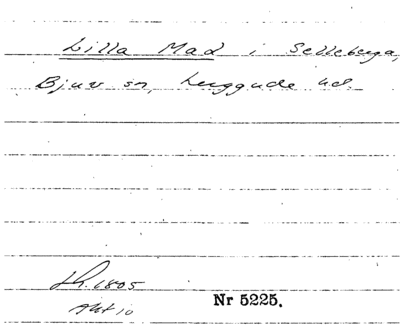 Lilla Mad i Selleberga,
Bjuv sn, Luggude hd.
Lh. 1805
Akt 10
Nr 5225.